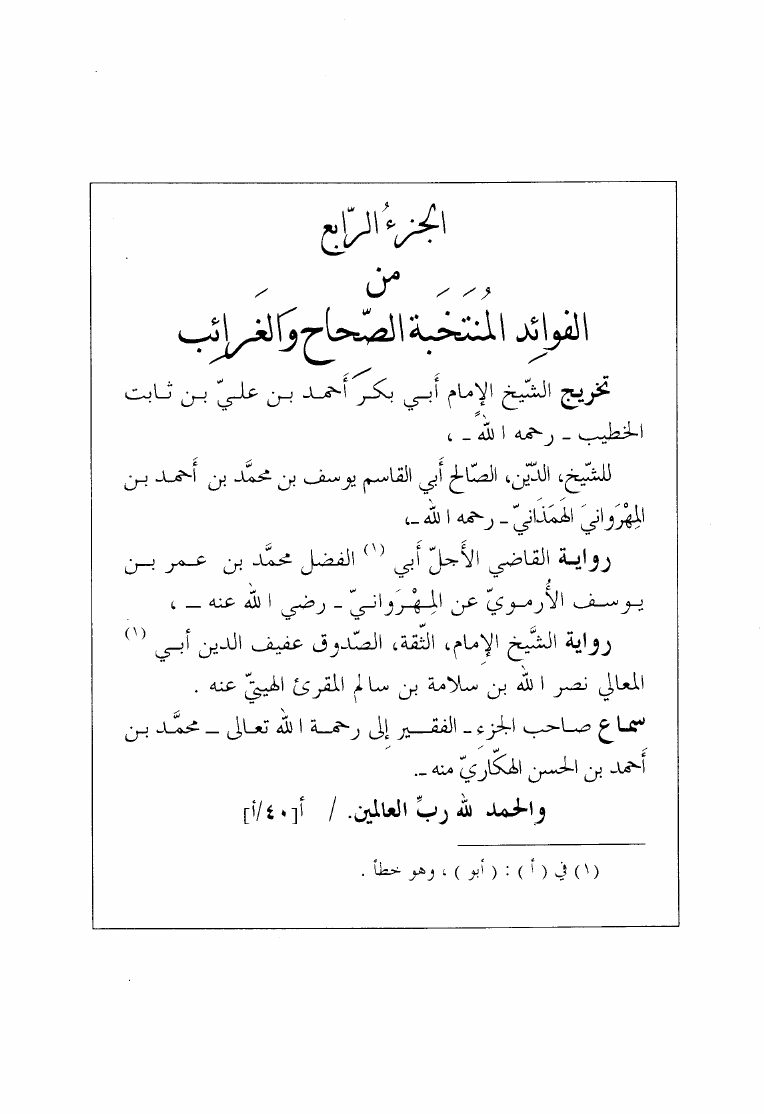 الجزءُ الرّابع
من
الفوائِد المُنتَخَبة الصّحاح والغَرائِب
تخريج الشّيخ الإمام أبي بكر أحمد بن عليّ بن ثابت
الخطيب ـ رحمه الله ـ ،
للشّيخ، الديّن، الصّالح أبي القاسم يوسف بن محمَّد بن أحمد بن
المِهْرَوانيّ الهَمَذَانيّ ـ رحمه الله ـ،
رواية القاضي الأجلّ أبي (١) الفضل محمَّد بن عمر بن
يوسف الأُرموي عن المِهْرَوانيّ ـ رضي الله عنه ـ ،
رواية الشَّيخ الإمام، الثّقة، الصّدوق عفيف الدين أبي (١)
المعالي نصر الله بن سلامة بن سالم المقرئ الهيتيّ عنه .
سماع صاحب الجزءِ ـ الفقير إلى رحمة الله تعالى ـ محمَّد بن
أحمد بن الحسن الهكّاريّ منه ـ.
والحمد لله ربِّ العالمين. / أ[٤٠/أ]
(١) في ( أ ) : ( أبو ) ، وهو خطأ .